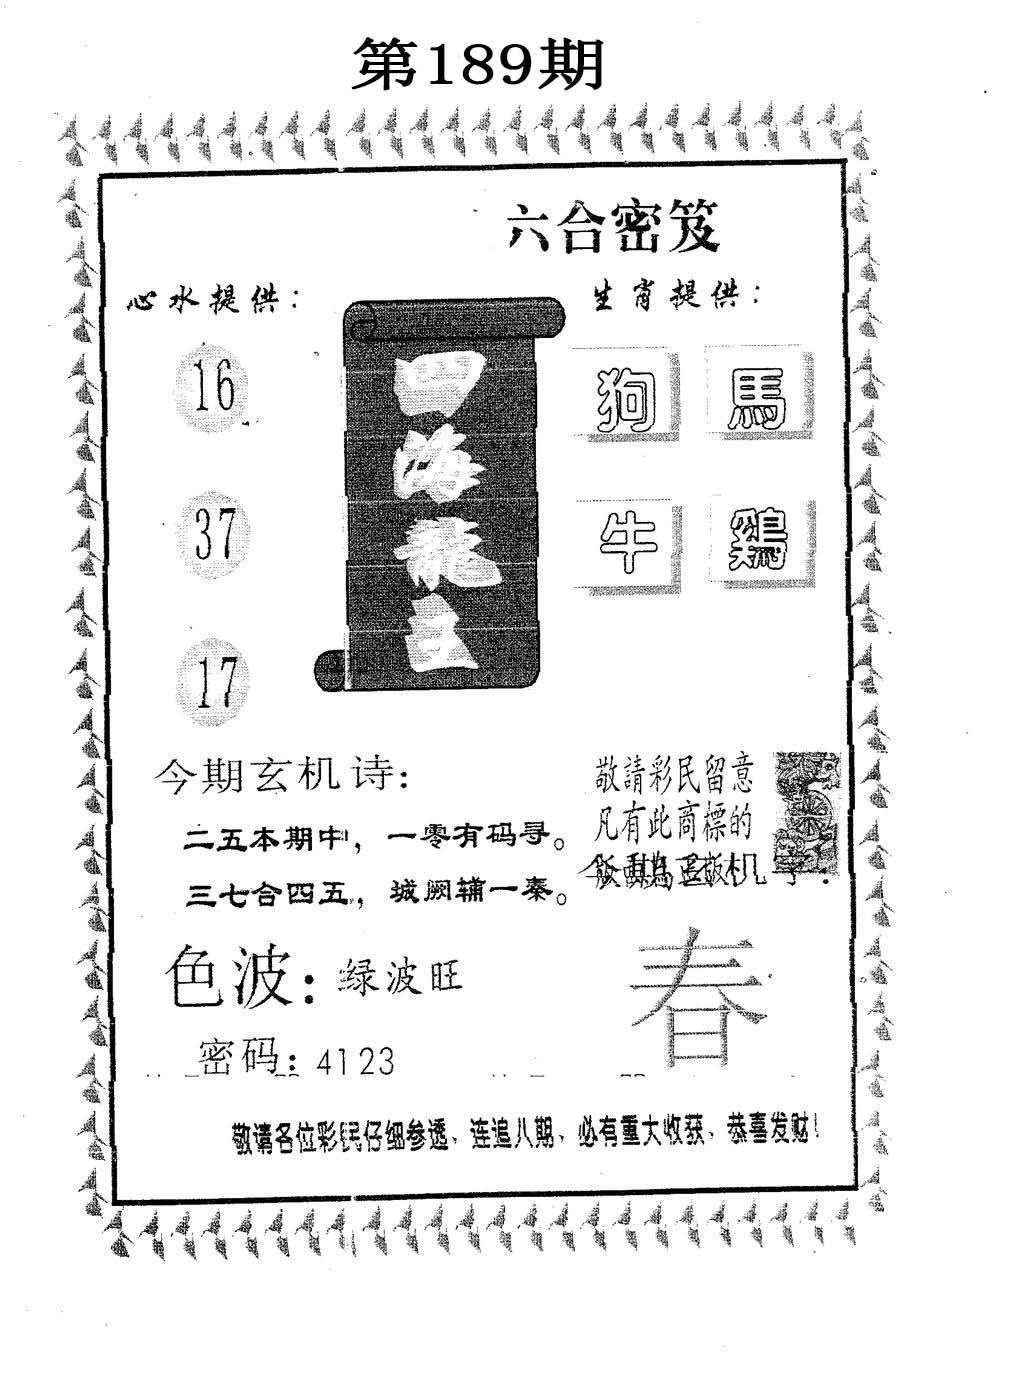 第189期
六合密笈
心水提供：
生肖提供：
16
37
17
四海龍王
狗
馬
牛
鷄
今期玄机诗：
二五本期中，一零有码寻。
三七合四五，城阙辅一秦。
敬請彩民留意
凡有此商標的
色波：绿波旺
春
密码：4123
敬请各位彩民仔细参透、连追八期、必有重大收获、恭喜发财！